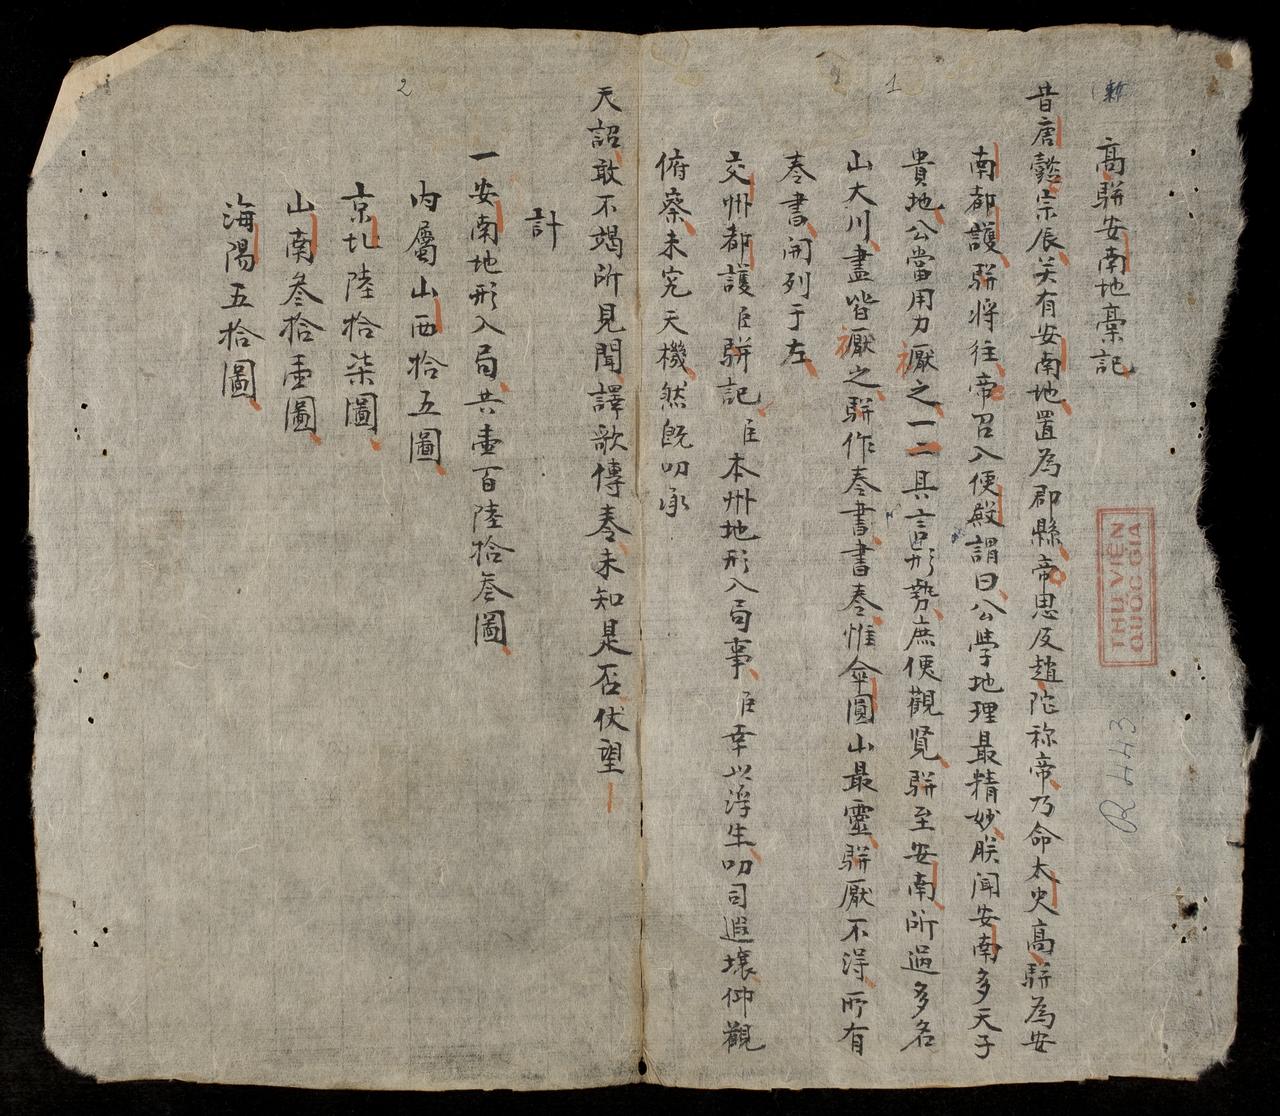 高駢安南地藁記
昔唐懿宗辰关有安南地置為郡縣帝思反趙陀祢帝乃命太史高駢為安
南都護駢將往帝召入便殿謂曰公學地理最精妙朕聞安南多天子
貴地公當用力厭之一二具言形势庶便觀覽駢至安南所過多名
山大川盡皆厭之駢作奏書書奏惟傘圓山最靈駢厭不淂所有
奏書開列于左
交州都護臣駢記臣本州地形入局事臣幸以浮生叨司遐壤仰觀
俯察未究天機然既叨承
天詔敢不竭所見聞譯歌傳奏未知是否伏望
計
一安南地形入局共壹百陸拾叁圖
內屬山西拾五圖
京北陸拾柒圖
山南叁拾壹圖
海陽五拾圖
1
2
THƯ VIỆN
QUỐC GIA
R 443